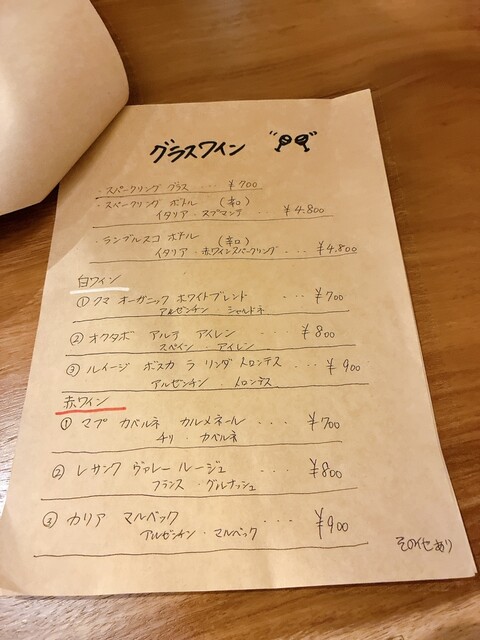 グラスワイン
・スパークリング グラス ・・・ ¥700
・スパークリング ボトル (辛口)
イタリア・スプマンテ ¥4.800
・ランブルスコ ボトル (辛口)
イタリア・赤ワインスパークリング ¥4.800
白ワイン
①クマ オーガニック ホワイトブレンド ・・・ ¥700
アルゼンチン シャルドネ
②オクタボ アルテ アイレン ・・・ ¥800
スペイン・アイレン
③ルイージ ボスカ ラ リンダ トロンテス ・・・ ¥900
アルゼンチン・トロンテス
赤ワイン
①マプ カベルネ カルメネール ・・・ ¥700
チリ・カベルネ
②レ サンク ヴァレー ルージュ ・・・ ¥800
フランス・グルナッシュ
③カリア マルベック ・・・ ¥900
アルゼンチン・マルベック
その他あり